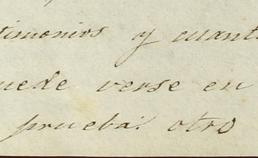 timonios y cuant
uede verse en
prueba: otro